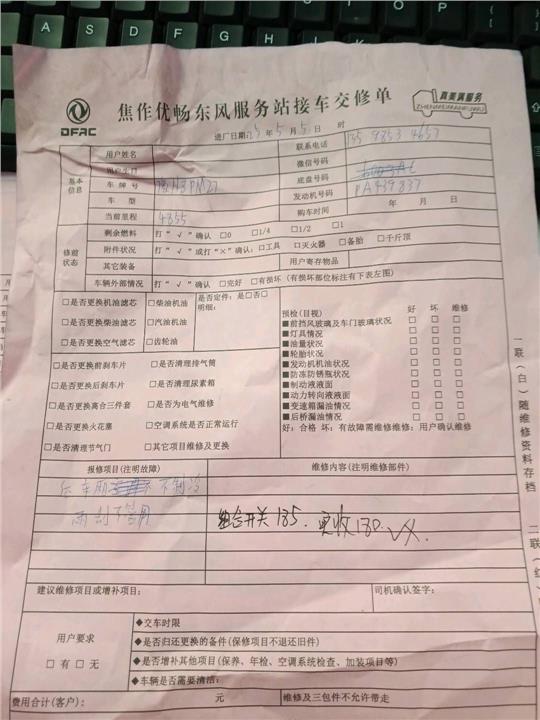 焦作优畅东风服务站接车交修单
DFAC
真美满服务
ZHENMEIMANFUWU
进厂日期: 5年5月5日 时
基本信息
用户姓名
联系电话
用户实行
微信号码
车牌号
底盘号码
车 型
发动机号码 PA439837
当前里程 4855
购车时间 年 月 日
修前状态
剩余燃料 打“√”确认 □0 □1/4 □1/2 □1
附件状况 打“√”或打“×”确认: □工具 □灭火器 □备胎 □千斤顶
其它装备
用户寄存物品
车辆外部情况 打“√”确认 □完好 □有损坏(有损坏部位标注有下表左图)
□是否更换机油滤芯 □柴油机油
□是否更换柴油滤芯 □汽油机油
□是否更换空气滤芯 □齿轮油
是否定件: 是□否□
明细:
□是否更换前刹车片 □是否清理排气筒
□是否更换后刹车片 □是否清理尿素箱
□是否更换离合三件套 □是否为电气维修
□是否更换火花塞 □空调系统是否正常运行
□是否清理节气门 □其它项目维修及更换
预检(目视) 好 坏 维修
■前挡风玻璃及车门玻璃状况 □ □ □
■灯具情况 □ □ □
■油量状况 □ □ □
■轮胎状况 □ □ □
■发动机机油状况 □ □ □
■防冻防锈瓶状况 □ □ □
■制动液液面 □ □ □
■动力转向液液面 □ □ □
■变速箱漏油情况 □ □ □
■后桥漏油情况 □ □ □
好: 合格 坏: 有故障需维修维修: 用户确认维修
报修项目(注明故障)
维修内容(注明维修部件)
不制冷
雨刮不管用
组合开关135. 实收130.
建议维修项目或增补项目:
司机确认签字:
用户要求
□有 □无
◆交车时限
◆是否归还更换的备件(保修项目不退还旧件)
◆是否增补其他项目(保养、年检、空调系统检查、加装项目等)
◆车辆是否需要清洁:
费用合计(客户): 元
维修及三包件不允许带走
一联(白)随维修资料存档
二联(